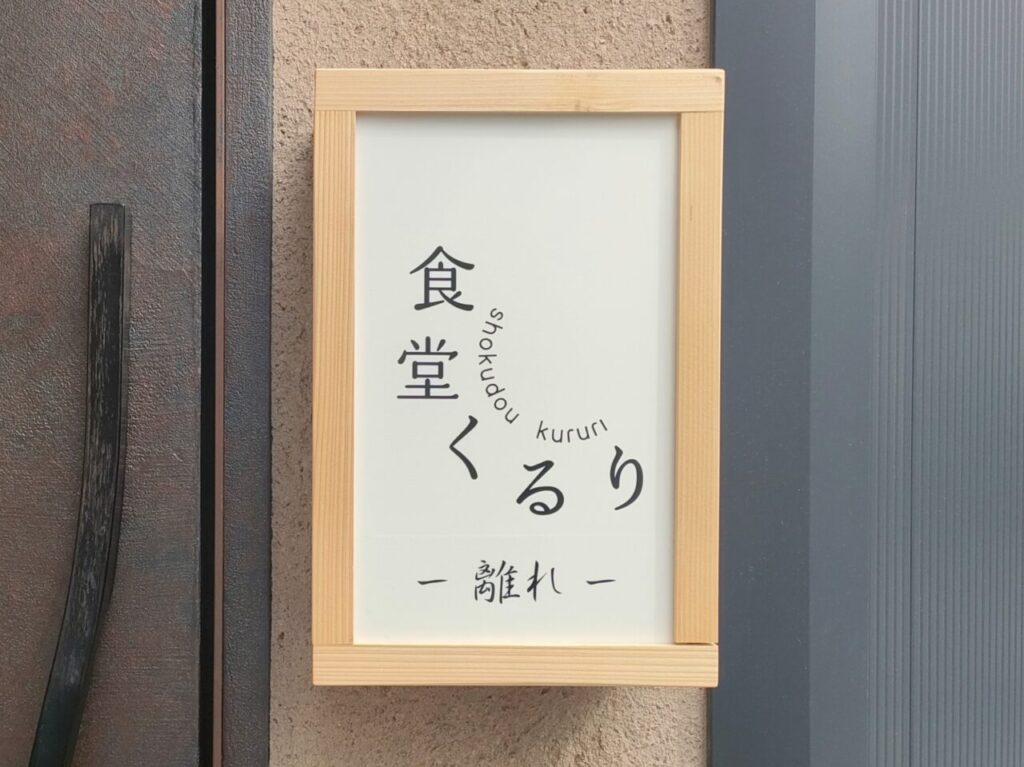 食堂くるり
shokudou kururi
ー 離れ ー